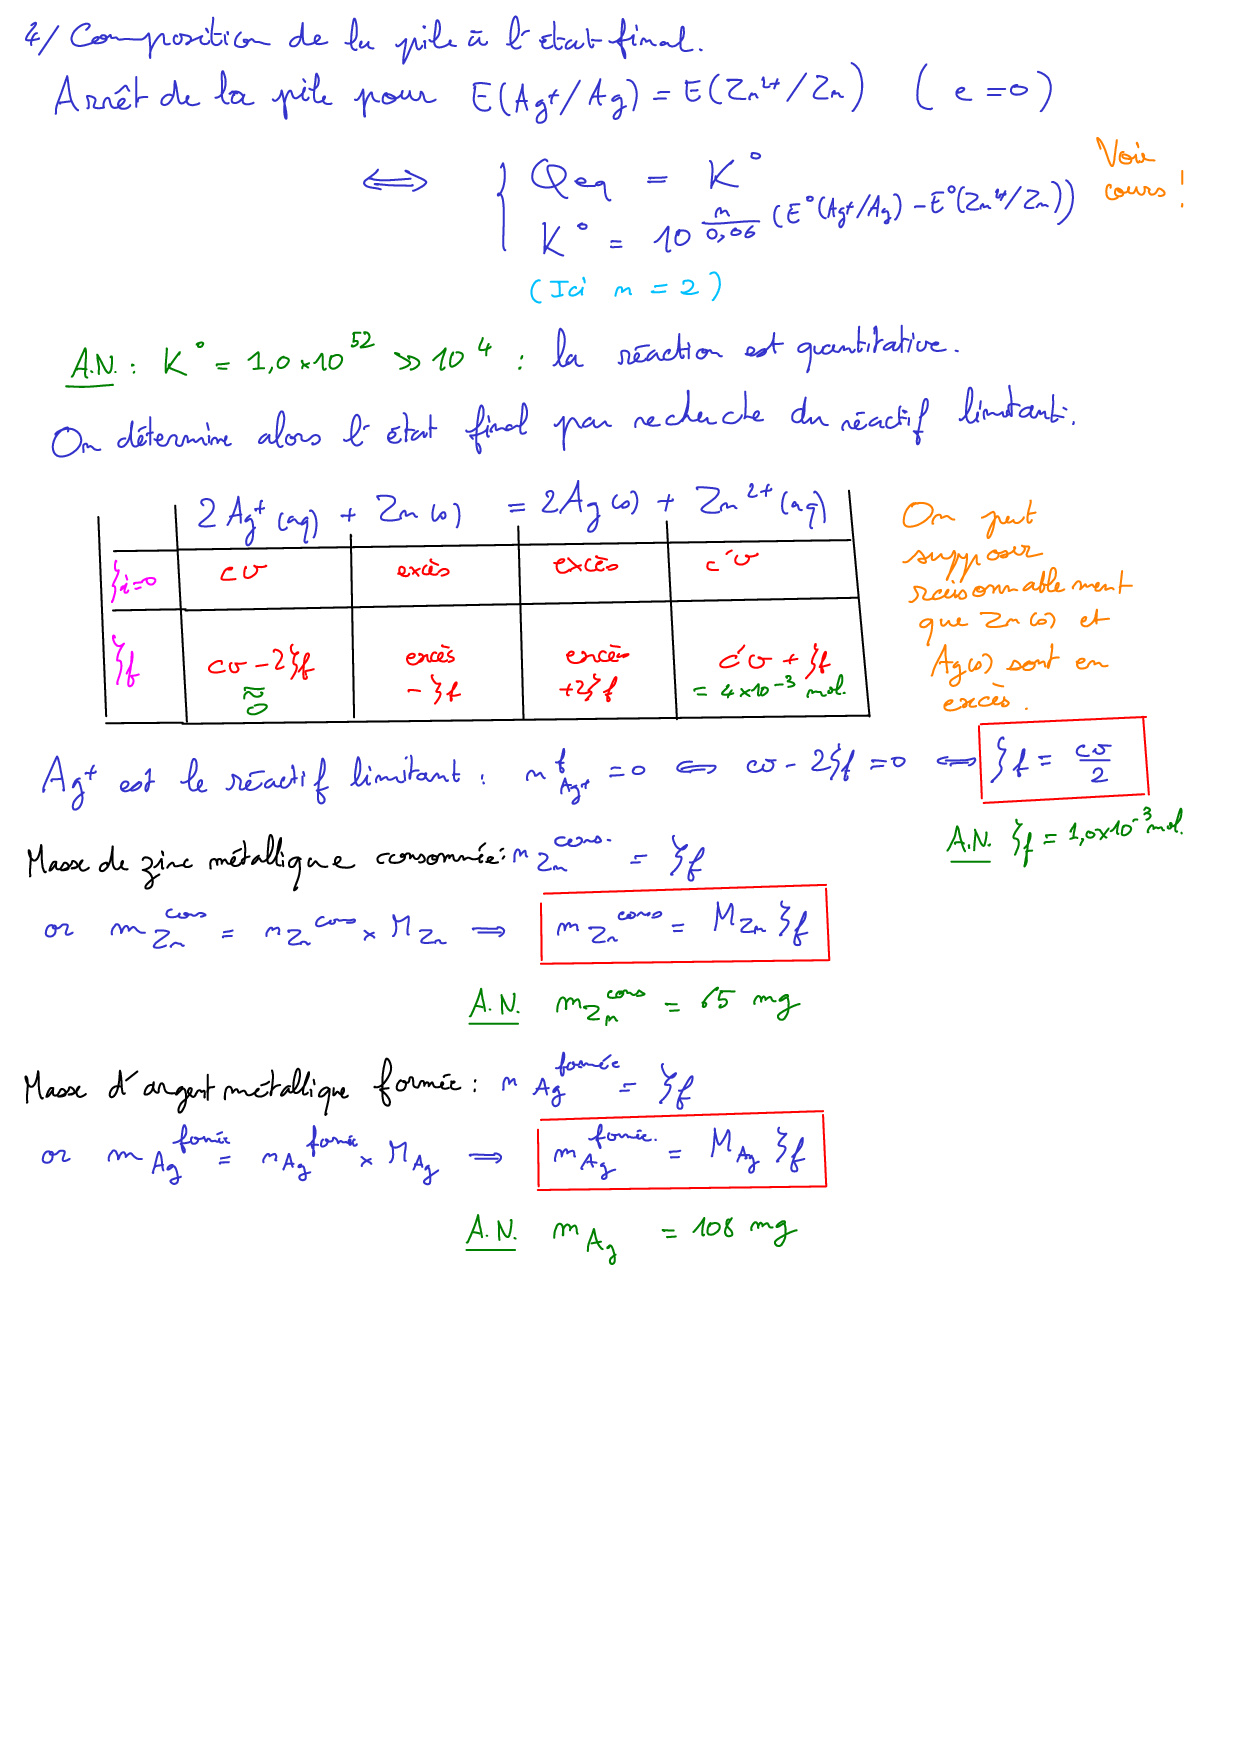 4/ Composition de la pile à l'état final.
Arrêt de la pile pour E(Ag⁺/Ag) = E(Zn²⁺/Zn) (e = 0)
⟺ { Qeq = K°
K° = 10^(n/0,06 (E°(Ag⁺/Ag) - E°(Zn²⁺/Zn)))
Voir cours !
(Ici n = 2)
A.N. : K° = 1,0 × 10⁵² >> 10⁴ : la réaction est quantitative.
On détermine alors l'état final par recherche du réactif limitant.
2Ag⁺(aq) + Zn(s) = 2Ag(s) + Zn²⁺(aq)
ξi=0 cv excès excès c'v
ξf cv - 2ξf excès - ξf excès +2ξf c'v + ξf
≈ 0 = 4×10⁻³ mol.
On peut
supposer
raisonnablement
que Zn(s) et
Ag(s) sont en
excès.
Ag⁺ est le réactif limitant : n^f_Ag⁺ = 0 ⟺ cv - 2ξf = 0 ⟺ ξf = cv/2
A.N. ξf = 1,0×10⁻³ mol.
Masse de zinc métallique consommée : n_Zn^cons. = ξf
or m_Zn^cons = n_Zn^cons × M_Zn ⟹ m_Zn^cons = M_Zn ξf
A.N. m_Zn^cons = 65 mg
Masse d'argent métallique formée : n_Ag^formée = ξf
or m_Ag^formée = n_Ag^formée × M_Ag ⟹ m_Ag^formée. = M_Ag ξf
A.N. m_Ag = 108 mg